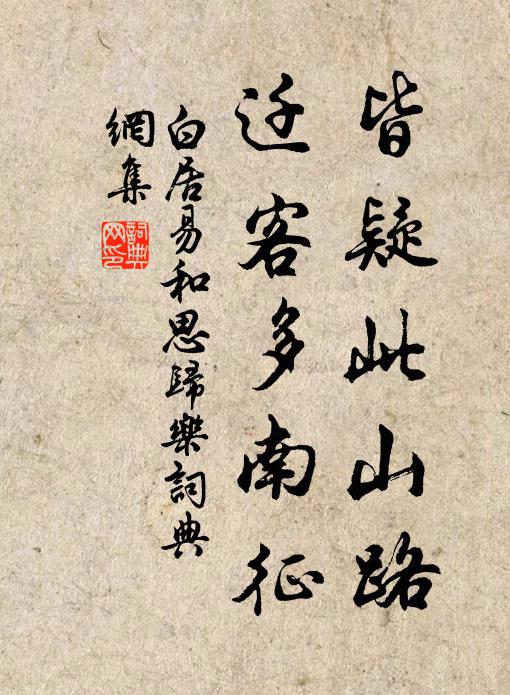 皆疑此山路
迁客多南征
白居易和思歸樂詞典
網集
詞典
网印